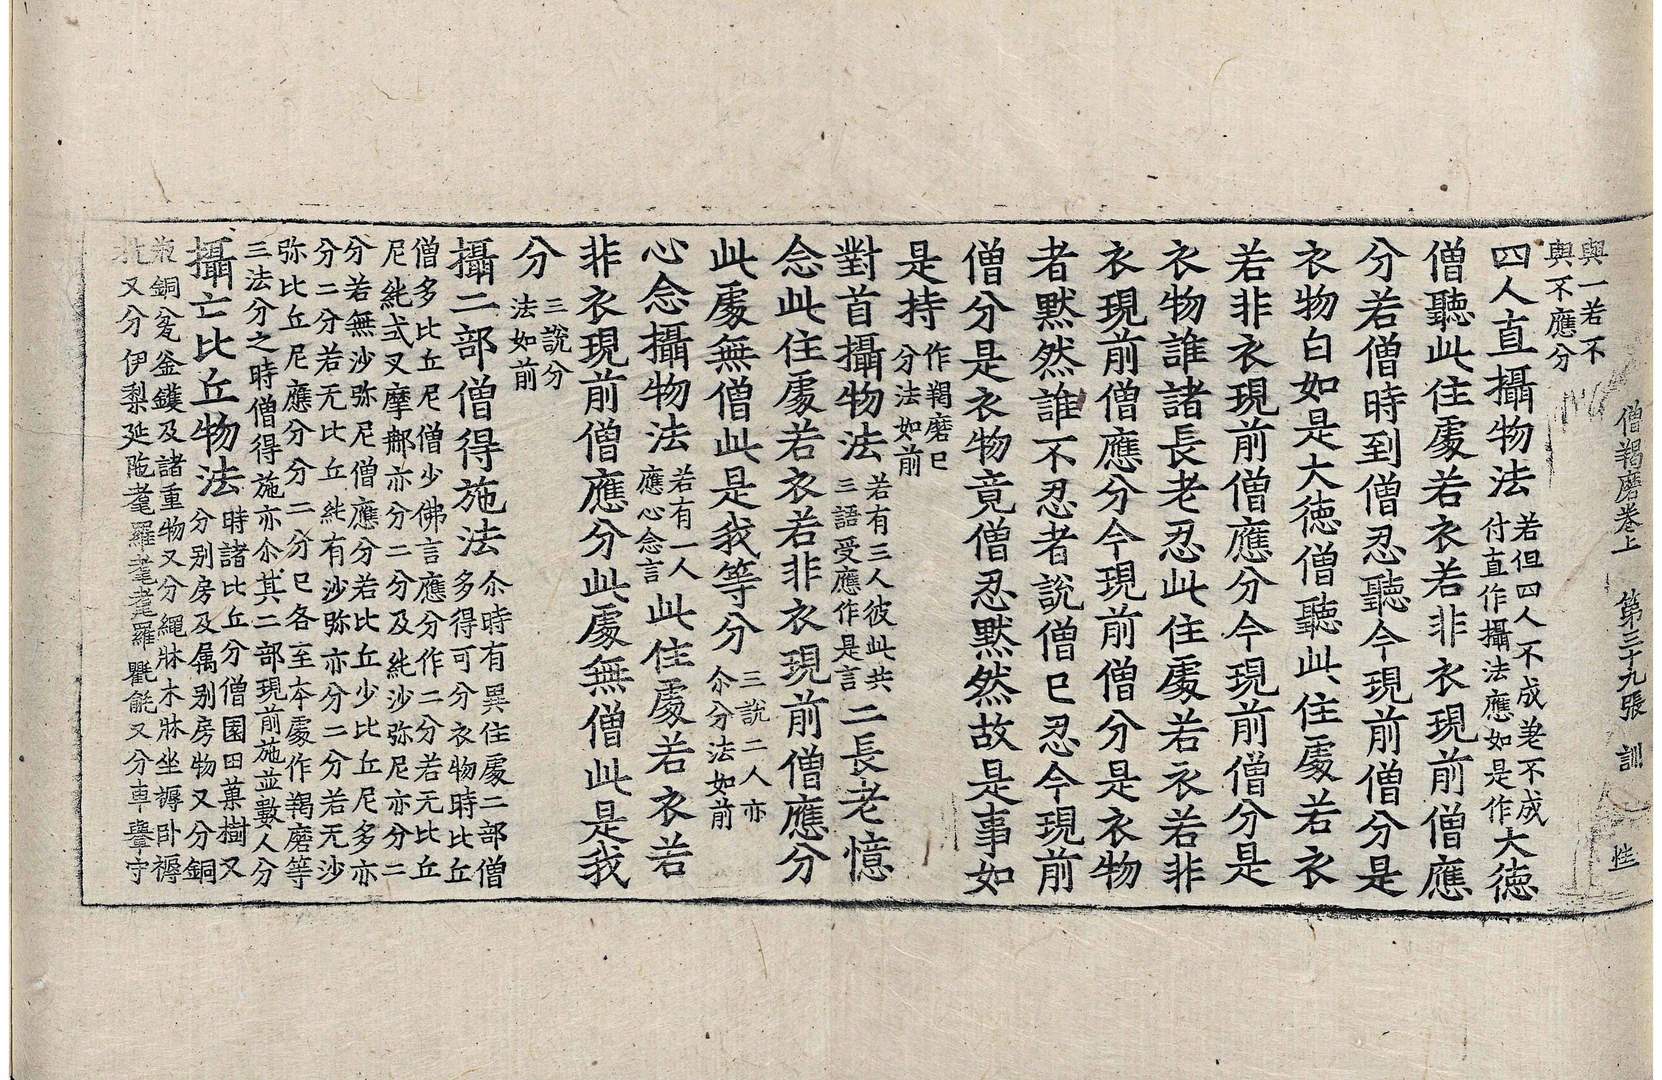 僧羯磨卷上 第三十九張 訓
與一若不
與不應分
四人直攝物法 若但四人不成差不成 付直作攝法應如是作 大徳
僧聽此住處若衣若非衣現前僧應
分若僧時到僧忍聽今現前僧分是
衣物白如是大徳僧聽此住處若衣
若非衣現前僧應分今現前僧分是
衣物誰諸長老忍此住處若衣若非
衣現前僧應分今現前僧分是衣物
者黙然誰不忍者說僧已忍今現前
僧分是衣物竟僧忍黙然故是事如
是持 作羯磨已 分法如前
對首攝物法 若有三人彼此共 三語受應作是言 二長老憶
念此住處若衣若非衣現前僧應分
此處無僧此是我等分 三說二人亦 尒分法如前
心念攝物法 若有一人 應心念言 此住處若衣若
非衣現前僧應分此處無僧此是我
分 三說分 法如前
攝二部僧得施法 尒時有異住處二部僧 多得可分衣物時比丘
僧多比丘尼僧少佛言應分作二分若无比丘
尼純式叉摩那亦分二分及純沙弥尼亦分二
分若無沙弥尼僧應分若比丘少比丘尼多亦
分二分若无比丘純有沙弥亦分二分若无沙
弥比丘尼應分分二分已各至本處作羯磨等
三法分之時僧得施亦尒其二部現前施並數人分
攝亡比丘物法 時諸比丘分僧園田菓樹又 分別房及属別房物又分銅
瓶銅瓮釜鑊及諸重物又分繩牀木牀坐褥卧褥
又分伊梨延陁耄羅耄耄羅氍㲣又分車轝守